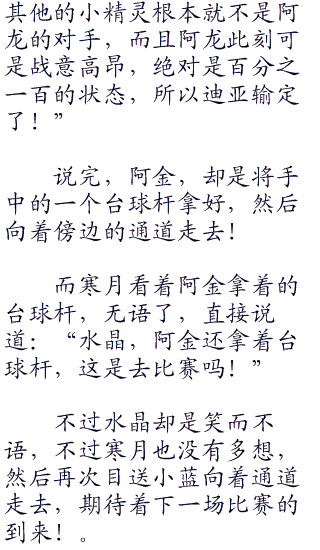 其他的小精灵根本就不是阿
龙的对手，而且阿龙此刻可
是战意高昂，绝对是百分之
一百的状态，所以迪亚输定
了！”
说完，阿金，却是将手
中的一个台球杆拿好，然后
向着傍边的通道走去！
而寒月看着阿金拿着的
台球杆，无语了，直接说
道：“水晶，阿金还拿着台
球杆，这是去比赛吗！”
不过水晶却是笑而不
语，不过寒月也没有多想，
然后再次目送小蓝向着通道
走去，期待着下一场比赛的
到来！。